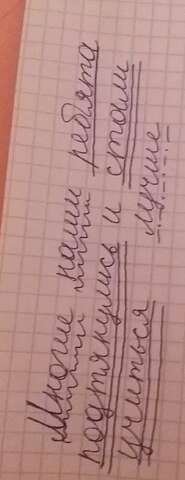 Многие наши ребята
подтянулись и стали
учиться лучше